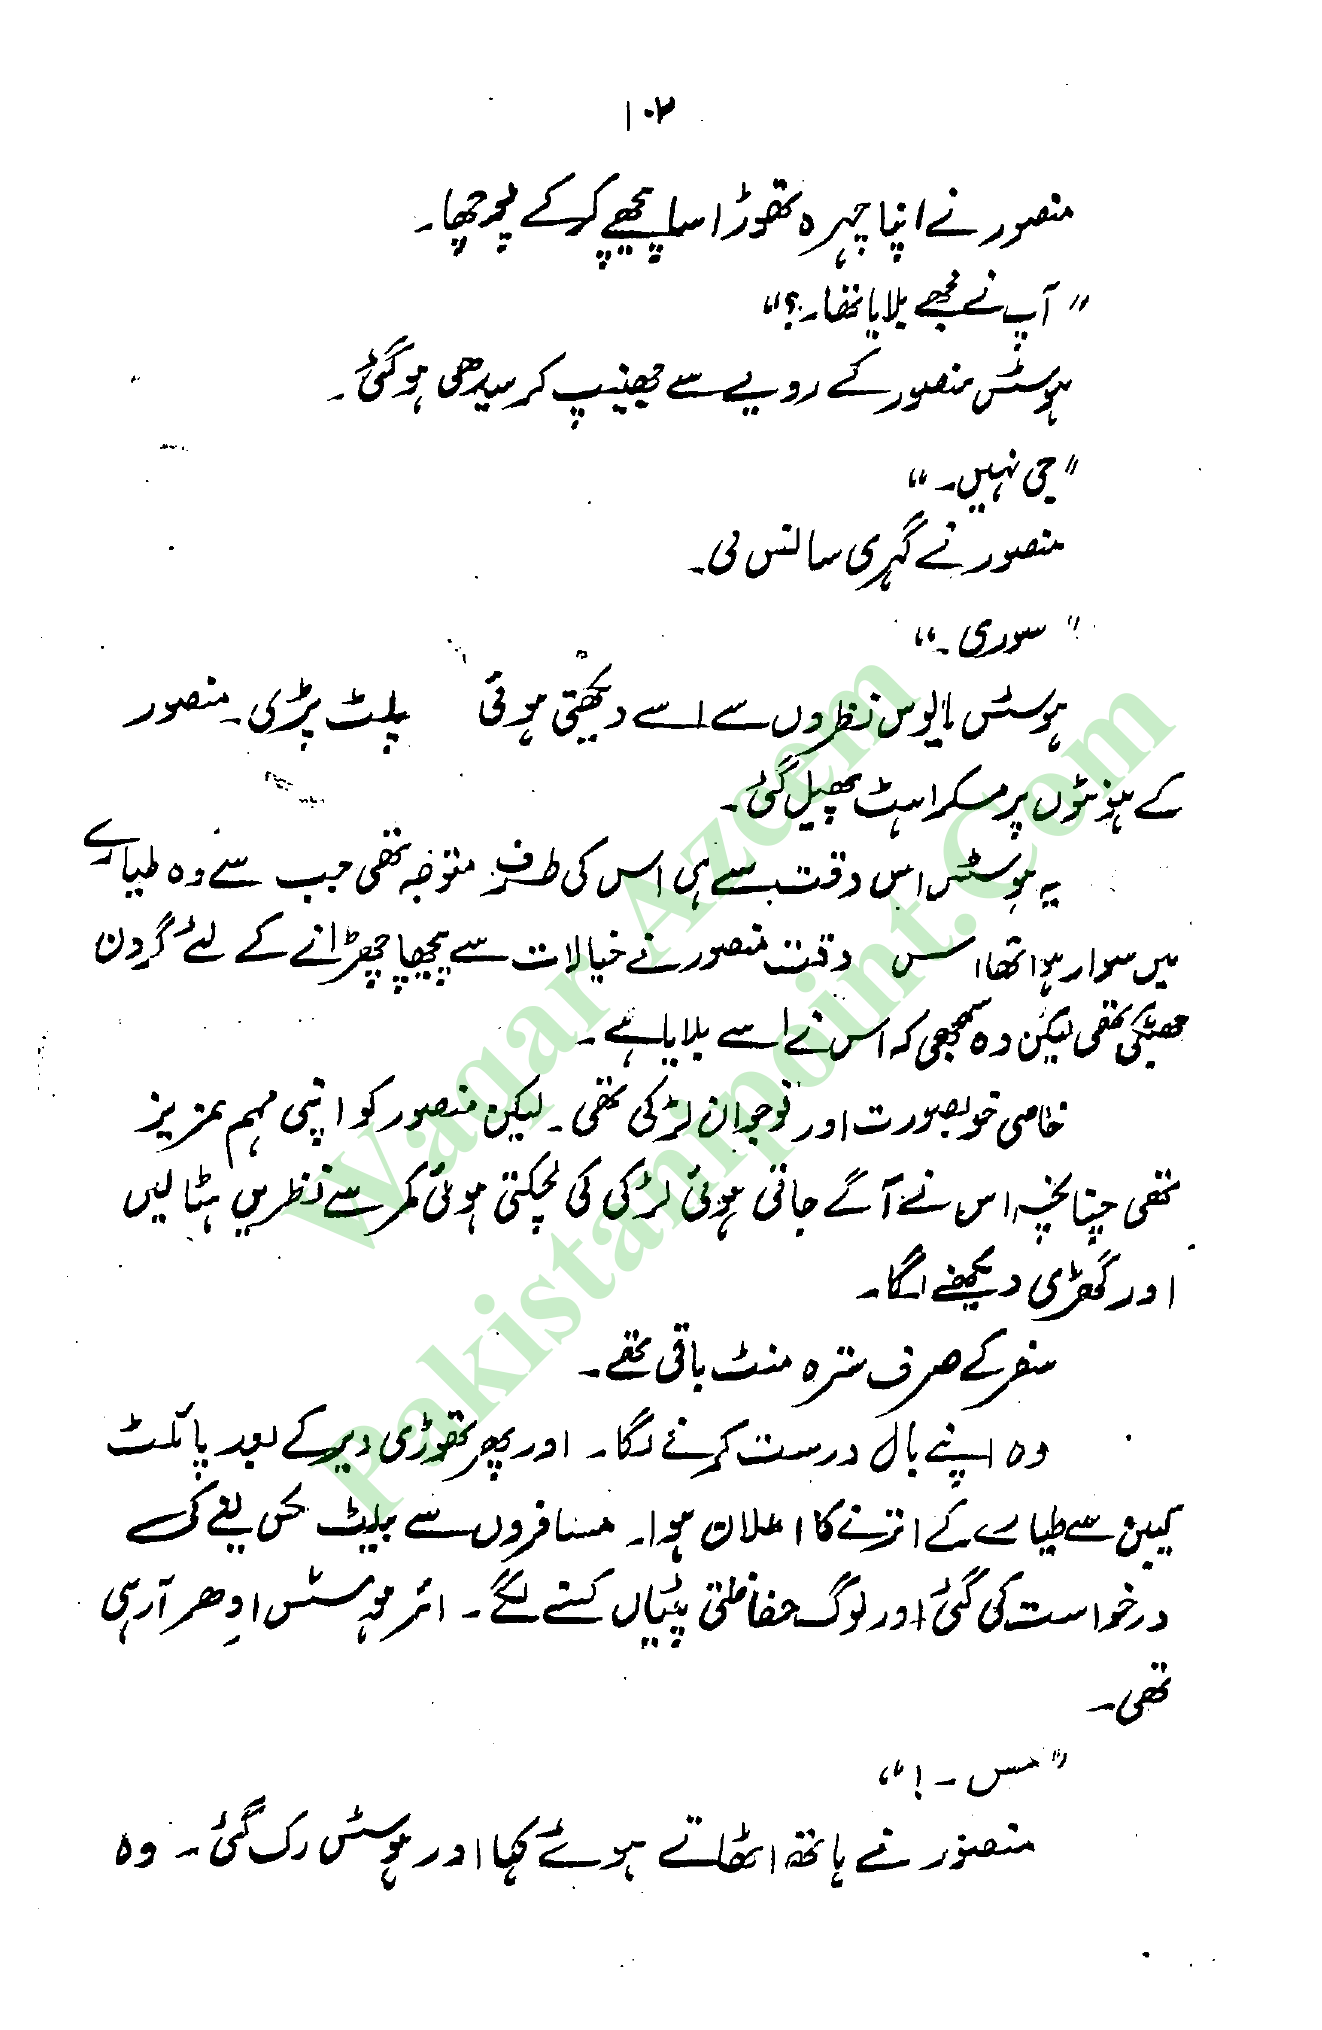 ۱۰۲
منصور نے اپنا چہرہ تھوڑا سا پیچھے کر کے پوچھا۔
"آپ نے مجھے بلایا تھا۔؟"
ہوسٹس منصور کے رویے سے جھینپ کر سیدھی ہو گئی۔
"جی نہیں۔"
منصور نے گہری سانس لی۔
"سوری۔"
ہوسٹس مایوس نظروں سے اسے دیکھتی ہوئی پلٹ پڑی۔ منصور
کے ہونٹوں پر مسکراہٹ پھیل گئی۔
یہ ہوسٹس اس وقت سے ہی اس کی طرف متوجہ تھی جب سے وہ طیارے
میں سوار ہوا تھا اس وقت منصور نے خیالات سے پیچھا چھڑانے کے لئے گردن
جھٹکی تھی لیکن وہ سمجھی کہ اس نے اسے بلایا ہے۔
خاصی خوبصورت اور نوجوان لڑکی تھی۔ لیکن منصور کو اپنی مہم عزیز
تھی چنانچہ اس نے آگے جاتی ہوئی لڑکی کی لچکتی ہوئی کمر سے نظریں ہٹا لیں
اور گھڑی دیکھنے لگا۔
سفر کے صرف سترہ منٹ باقی تھے۔
وہ اپنے بال درست کرنے لگا۔ اور پھر تھوڑی دیر کے بعد پائلٹ
کیبن سے طیارے کے اترنے کا اعلان ہوا۔ مسافروں سے بیلٹ کس لینے کی
درخواست کی گئی اور لوگ حفاظتی پیٹیاں کسنے لگے۔ ائر ہوسٹس ادھر آرہی
تھی۔
"مس۔!"
منصور نے ہاتھ اٹھاتے ہوئے کہا اور ہوسٹس رک گئی۔ وہ
Waqar Azeem
Pakistanipoint.Com